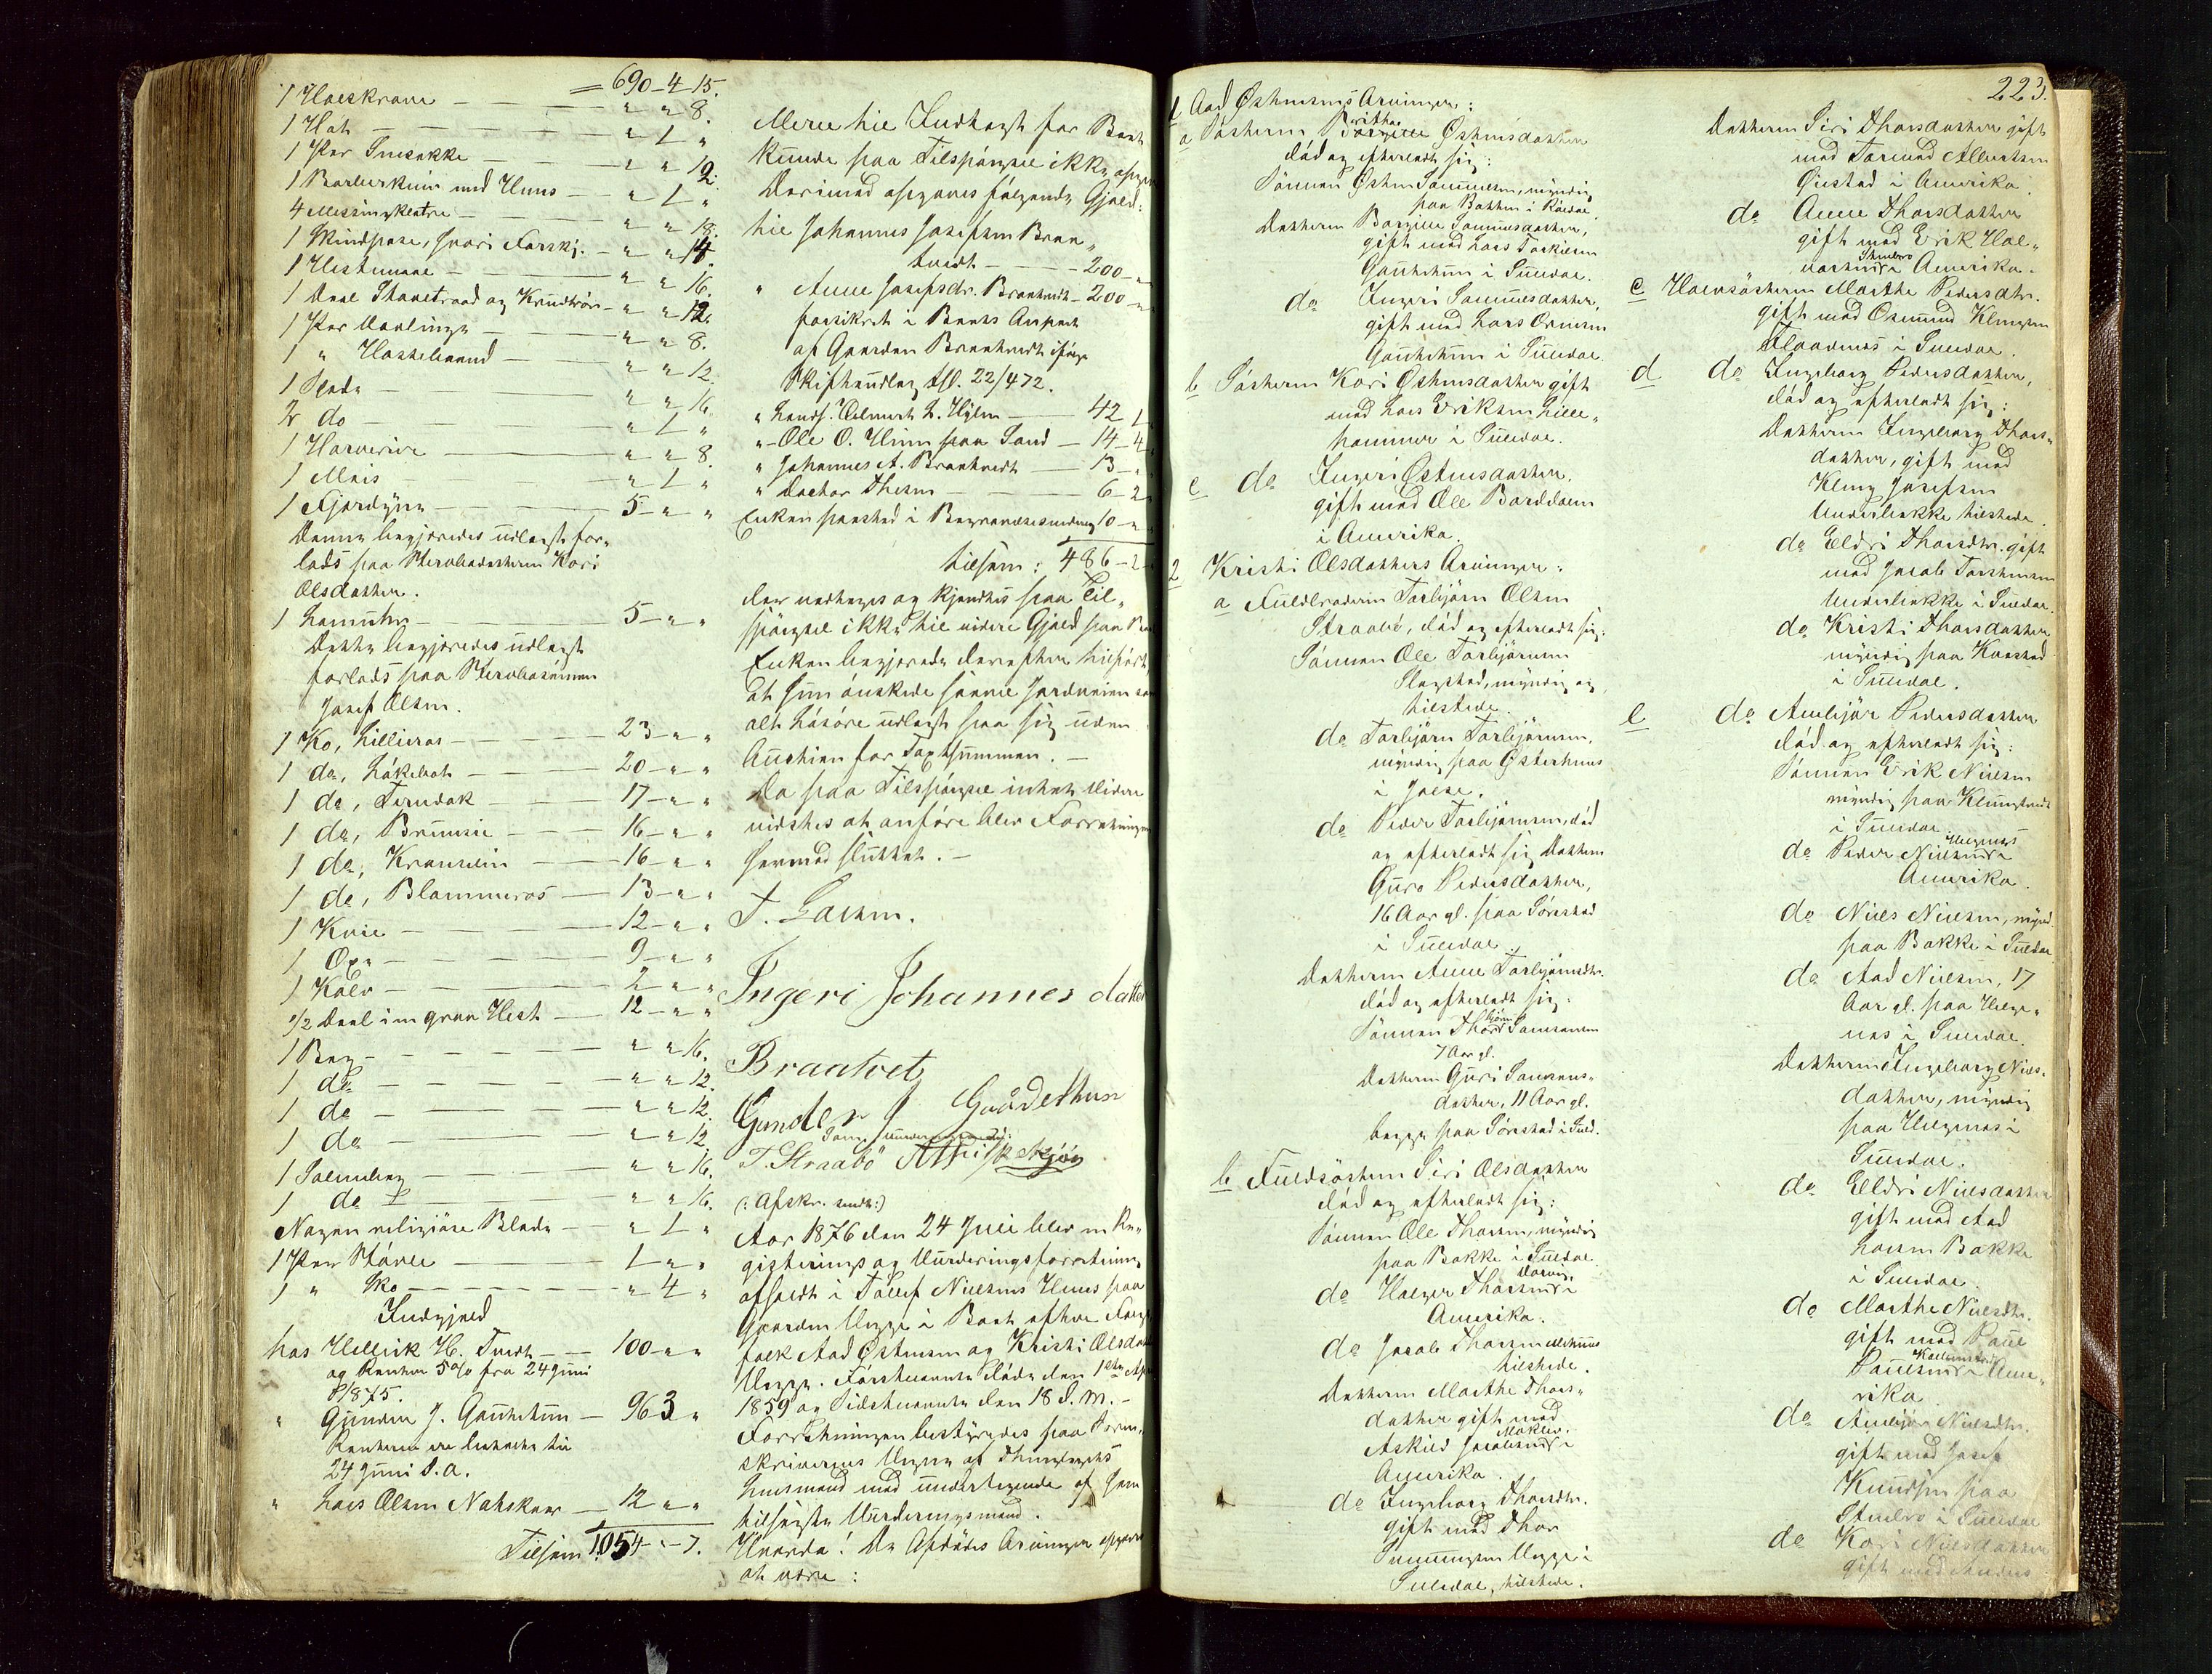 = 690-4-15.
1 Halskrave — " " 8.
1 Hat — " 1 "
1 Par Snesokke — " " 12.
1 Barberkniv med Huus — " 1 "
4 Messingklatre — " " 18.
1 Skindpose, hvori Forskj. — " " 14.
1 Hestunne — " " 16.
1 Deel Stavetraad og — " " 12.
1 Par — " " 8.
1 " — " " 12.
1 Plade — " " 16.
2 do — " 1 "
1 Harverive — " " 8.
1 Meis — " 1 "
1 Fjordyne — 5 " "
Denne begjæredes udlagt for-
lods paa Sterbodatteren Kari
Olsdatter.
1 — 5 " "
Dette begjæredes udlagt
forlods paa Sterbosønnen
Josef Olsen.
1 Ko, Lilliros — 23 " "
1 do, — 20 " "
1 do, — 17 " "
1 do, — 16 " "
1 do, Kranselin — 16 " "
1 do, Blommeros — 13 " "
1 Kvie — 12 " "
1 Oxe — 9 " "
1 Kalv — 2 " "
1/2 Deel i en graa Hest — 12 " "
1 Bog — " " 16.
1 do — " " 12.
1 do — " " 12.
1 do — " " 12.
1 Salmebog — " " 16.
1 do — " " 16.
Nogen religiöse Blade — " 1 "
1 Par Støvle — 1 " "
1 " Sko — " 4 "
Indgjæld
hos Hellik H. Tveit — 100 " "
og Renter 5% fra 24 Juni
1875.
" Gunder J. Gautetun — 96 3 "
Renterne ere betalte til
24 Juni d. a.
" Lars Olsen Natskaar — 12 " "
Tilsam 1054 " - 7.
Mere til Indtægt for Boet
kunde paa Tilspørgsel ikke opgives
Derimod opgaves følgende Gjeld:
til Johannes Josefsen Braa-
tveit — 200 - "
" Anne Josefsdr. Braatveit - 200 - "
forsikret i Boets Anpart
af Gaarden Braatveit ifølge
Skifteudlæg tgl. 22/4 72.
" Landh. L. Hylen — 42 1
" Ole O. paa Sand — 14 - 4
" Johannes A. Braatveit — 13 - "
" Doctor — 6 - 2
Enken paastod i Begravelsesomkostning 10 - "
tilsam: 486 - 2
der vedtoges og kjendtes paa Til-
spørgsel ikke til videre Gjeld paa
Enken begjærede derefter tilført,
at hun ønskede saavel Jordveien som
alt Løsøre udlagt paa sig uden
Auction for Taxtsummen. —
Da paa Tilspørgsel intet videre
vidstes at anføre blev Forretningen
hermed sluttet. —
T. Larsen.
Ingeri Johannes datter
Braatvet
Gunder J Goudethun
T. Straabø
(: Afskr. sendt :)
Aar 1876 den 24 Juli blev en Re-
gistrerings og Vurderingsforretning
afholdt i Tollef Nielsens Huus paa
Gaarden Vegge i Boet efter Folge-
folk Aad Østensen og Kristi Olsdatter
Vegge. Førstnævnte døde den 1ste
1859 og Sidstnævnte den 18 d. M. —
Forretningen bestyredes paa Soren-
skriverens Vegne af Thinglagets
Lensmand med undertegnede af ham
tilsagte Vurderingsmænd.
Hvorda! De Afdødes Arvinger opgaves
at være:
223.
1 Aad Østensens Arvinger:
a Søsteren Britha Østensdatter
død og efterladt sig:
Sønnen Østen Samuelsen, myndig
paa Bakken i Røldal.
Datteren Samuelsdatter,
gift med Lars Torkilsen
Gautetun i Suledal.
do Ingeri Samuelsdatter,
gift med Lars Ormsen
Gautetun i Suledal.
b Søsteren Kari Østensdatter gift
med Lars Eriksen Lille-
hammer i Suledal.
c do Ingeri Østensdatter,
gift med Ole Barddalen
i Amerika.
2 Kristi Olsdatters Arvinger:
a Fuldbroderen Torbjörn Olsen
Straabö, død og efterladt sig:
Sønnen Ole Torbjörnsen
Slogstad, myndig og
tilstede.
do Torbjörn Torbjörnsen,
myndig paa Østerhuus
i Jelse.
do Peder Torbjörnsen, død
og efterladt sig Datter
Guro Pedersdatter,
16 Aar gl. paa Sørestad
i Suledal.
Datteren Anne Torbjörnsdtr.
død og efterladt sig:
Sønnen Thorbjörn Samsonsen
7 Aar gl.
Datteren Guri Samsons-
datter, 11 Aar gl.
begge paa Sørestad i Suld.
b Fuldsøsteren Siri Olsdatter
død og efterladt sig:
Sønnen Ole Thorsen, myndig
paa Bakke i Suledal.
do Holger Thorsen i
Amerika.
do Jacob Thorsen
tilstede.
Datteren Marthe Thors-
datter gift med
Askild Jacobsen i
Amerika.
do Ingeborg Thorsdtr.
gift med Thor
Vegge i
Suledal, tilstede.
Datteren Siri Thorsdatter gift
med Tormod Albertsen
i Amerika.
do Anne Thorsdatter
gift med Erik Hal-
vorsen Stenbro i Amerika.
c Halvsøsteren Marthe Pedersdtr.
gift med Osmund Klungsen
i Suledal.
d do Ingeborg Pedersdatter,
død og efterladt sig:
Datteren Ingeborg Thors-
datter, gift med
Kleng Josefsen
Underbakke tilstede.
do Eldri Thorsdtr. gift
med Jacob Torstensen
Underbakke i Suledal.
do Kristi Thorsdatter
myndig paa
i Suledal.
e do Anbjör Pedersdatter
død og efterladt sig:
Sønnen Erik Nielsen
myndig paa Klungtveit
i Suledal.
do Peder Nielsen Helgenæs i
Amerika.
do Niels Nielsen, mynd.
paa Bakke i Suledal
do Aad Nielsen, 17
Aar gl. paa Helge-
næs i Suledal.
Datteren Ingeborg Niels-
datter, myndig
paa Helgenæs i
Suledal.
do Eldri Nielsdatter
gift med Aad
Larsen Bakke
i Suledal.
do Marthe Nielsdtr.
gift med Paul
Paulsen i Ame-
rika
do Anbjör Nielsdtr.
gift med Josef
Knudsen paa
Stenbro i Suledal
do Kari Nielsdatter
gift med Anders